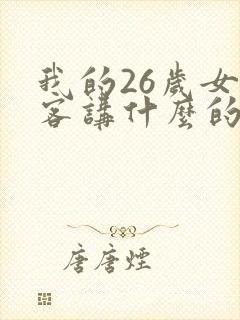 我的26歲女
客講什麼的
唐唐煙